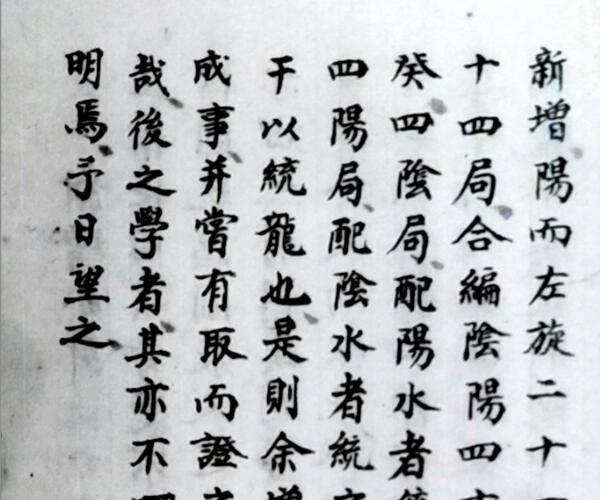 新增陽而左旋二十
十四局合編陰陽四
癸四陰局配陽水者
四陽局配陰水者統
干以統龍也是則余增
成事并嘗有取而證
哉後之學者其亦不
明焉予日望之